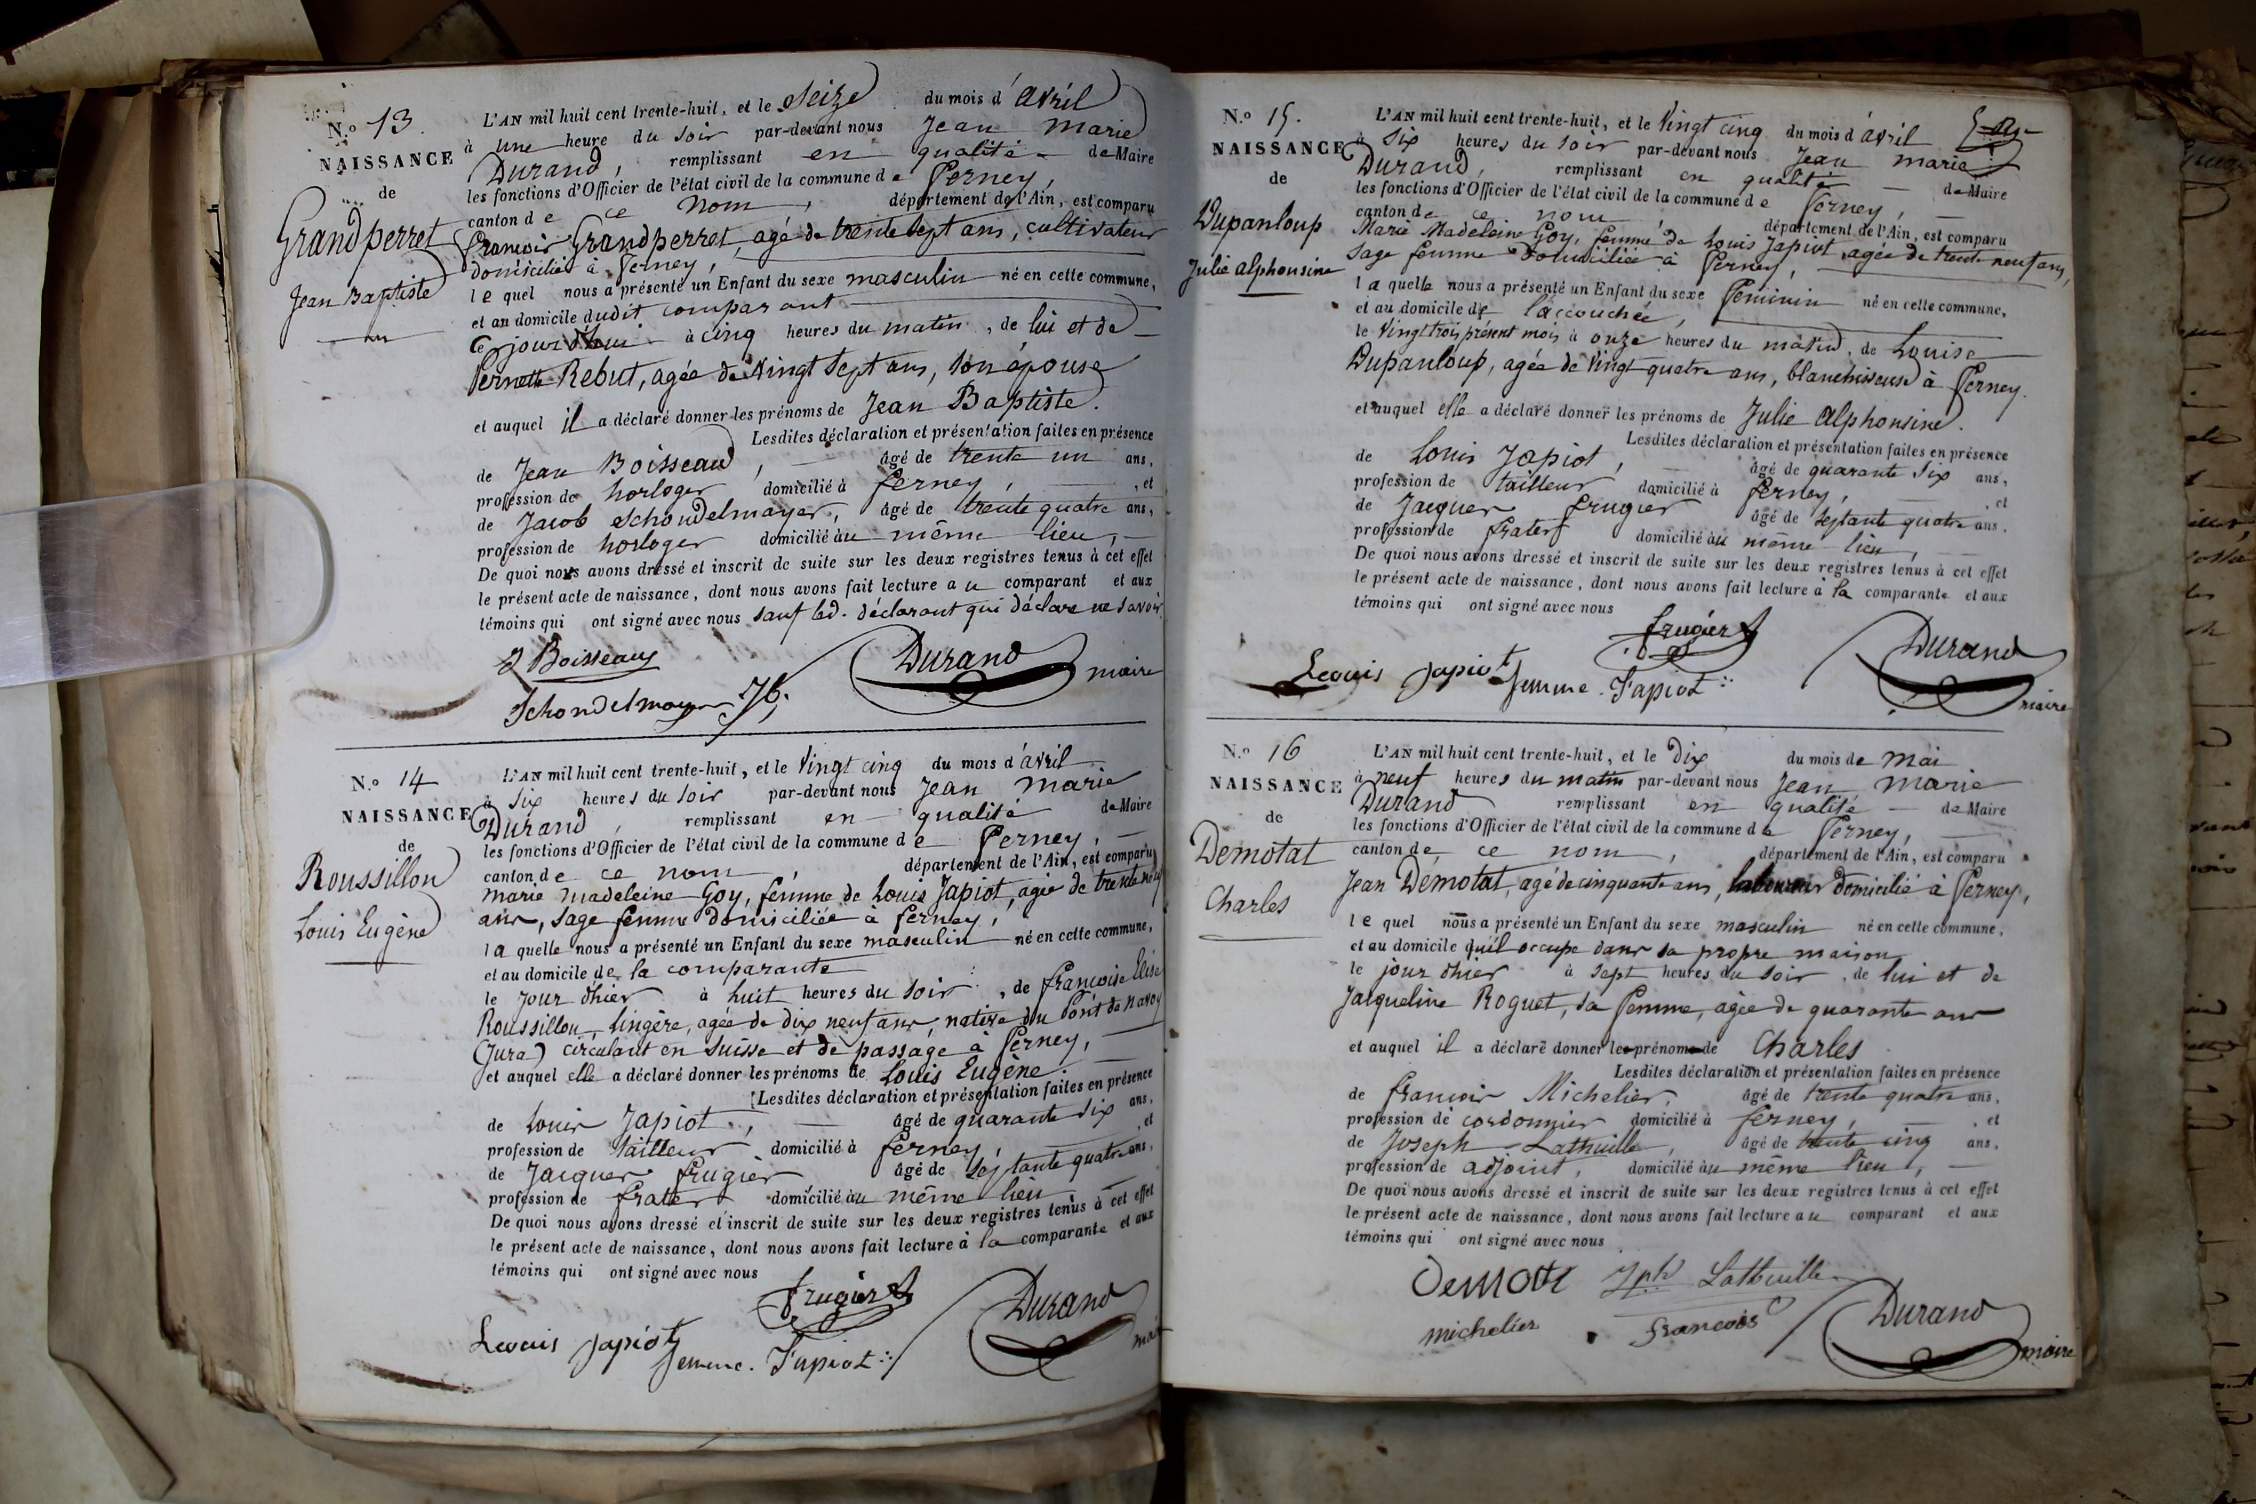 N.o 13.
NAISSANCE
de
Grandperret
Jean Baptiste
L'AN mil huit cent trente-huit, et le Seize du mois d'avril
à une heure du soir par-devant nous Jean Marie
Durand, remplissant en qualité de Maire
les fonctions d'Officier de l'état civil de la commune de Ferney,
canton de ce nom, département de l'Ain, est comparu
François Grandperret, agé de trente sept ans, cultivateur
domicilié à Ferney,
lequel nous a présenté un Enfant du sexe masculin né en cette commune,
et au domicile dudit comparant
Ce jourd'hui à cinq heures du matin, de lui et de
Pernette Rebut, agée de Vingt Sept ans, son épouse
et auquel il a déclaré donner les prénoms de Jean Baptiste.
Lesdites déclaration et présentation faites en présence
de Jean Boisseau, âgé de trente un ans,
profession de horloger domicilié à Ferney, et
de Jacob Schondelmayer, âgé de trente quatre ans,
profession de horloger domicilié au même lieu,
De quoi nous avons dressé et inscrit de suite sur les deux registres tenus à cet effet
le présent acte de naissance, dont nous avons fait lecture au comparant et aux
témoins qui ont signé avec nous sauf led. déclarant qui déclare ne savoir
J Boisseau
Durand maire
Schondelmayer Jb.
N.o 14
NAISSANCE
de
Roussillon
Louis Eugène
L'AN mil huit cent trente-huit, et le Vingt cinq du mois d'avril
à six heures du soir par-devant nous Jean Marie
Durand, remplissant en qualité de Maire
les fonctions d'Officier de l'état civil de la commune de Ferney,
canton de ce nom, département de l'Ain, est comparu
Marie Madeleine Goy, femme de Louis Japiot, agée de trente neuf
ans, Sage femme domiciliée à Ferney,
laquelle nous a présenté un Enfant du sexe masculin né en cette commune,
et au domicile de la comparante
le jour d'hier à huit heures du soir, de Françoise Elise
Roussillon, lingère, agée de dix neuf ans, native du Pont de Navoy
(Jura) circulant en Suisse et de passage à Ferney,
et auquel elle a déclaré donner les prénoms de Louis Eugène.
Lesdites déclaration et présentation faites en présence
de Louis Japiot, âgé de quarante six ans,
profession de tailleur domicilié à Ferney, et
de Jacques Frugier âgé de Septante quatre ans,
profession de frater domicilié au même lieu
De quoi nous avons dressé et inscrit de suite sur les deux registres tenus à cet effet
le présent acte de naissance, dont nous avons fait lecture à la comparante et aux
témoins qui ont signé avec nous
frugier
Durand
Louis Japiot
femme. Japiot
N.o 15.
NAISSANCE
de
Dupanloup
Julie alphonsine
L'AN mil huit cent trente-huit, et le Vingt cinq du mois d'avril
à six heures du soir par-devant nous Jean marie
Durand, remplissant en qualité de Maire
les fonctions d'Officier de l'état civil de la commune de Ferney,
canton de ce nom département de l'Ain, est comparu
Marie Madeleine Goy, femme de Louis Japiot, agée de trente neuf ans,
Sage femme domiciliée à Ferney,
laquelle nous a présenté un Enfant du sexe féminin né en cette commune,
et au domicile de l'accouchée,
le Vingt trois présent mois à onze heures du matin, de Louise
Dupanloup, agée de Vingt quatre ans, blanchisseuse à Ferney.
et auquel elle a déclaré donner les prénoms de Julie Alphonsine.
Lesdites déclaration et présentation faites en présence
de Louis Japiot, âgé de quarante six ans,
profession de tailleur domicilié à Ferney, et
de Jacques Frugier âgé de septante quatre ans.
profession de frater domicilié au même lieu,
De quoi nous avons dressé et inscrit de suite sur les deux registres tenus à cet effet
le présent acte de naissance, dont nous avons fait lecture à la comparante et aux
témoins qui ont signé avec nous
frugier
Durand maire
Louis Japiot
femme. Japiot
N.o 16
NAISSANCE
de
Demotat
Charles
L'AN mil huit cent trente-huit, et le Dix du mois de mai
à neuf heures du matin par-devant nous Jean Marie
Durand remplissant en qualité de Maire
les fonctions d'Officier de l'état civil de la commune de Ferney,
canton de ce nom, département de l'Ain, est comparu
Jean Demotat, agé de cinquante ans, domicilié à Ferney,
lequel nous a présenté un Enfant du sexe masculin né en cette commune,
et au domicile qu'il occupe dans sa propre maison
le jour d'hier à sept heures du soir, de lui et de
Jacqueline Roguet, sa femme, agée de quarante ans
et auquel il a déclaré donner le prénom de Charles
Lesdites déclaration et présentation faites en présence
de François Michelier, âgé de trente quatre ans,
profession de cordonnier domicilié à Ferney, et
de Joseph Lathuille, âgé de trente cinq ans,
profession de adjoint, domicilié au même lieu,
De quoi nous avons dressé et inscrit de suite sur les deux registres tenus à cet effet
le présent acte de naissance, dont nous avons fait lecture au comparant et aux
témoins qui ont signé avec nous
Jph Lathuille
michelier francois
Durand maire